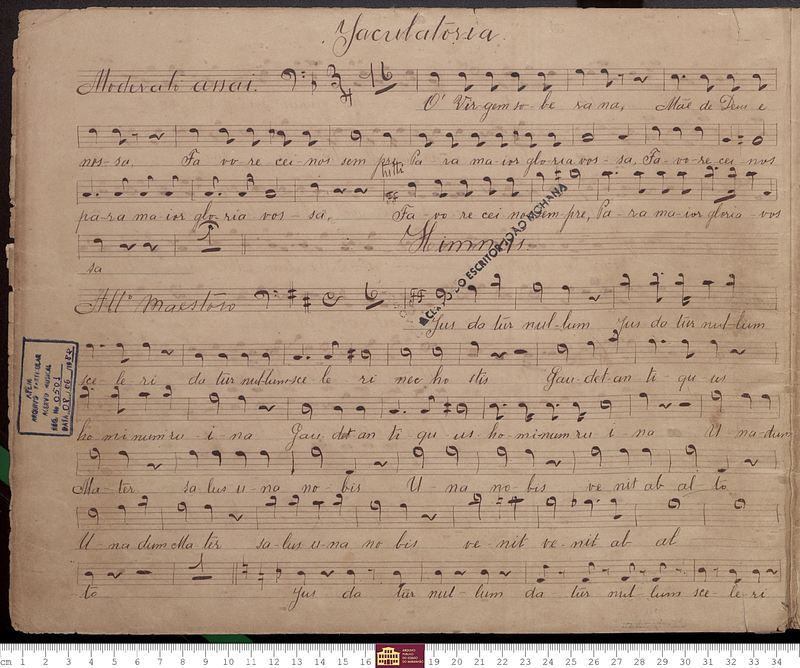 Jaculatoria.
Moderato assai.
O' Vir-gem so-be ra na, Mãe de Deus e
nos-sa, Fa vo-re cei-nos sem pre, Pa-ra ma-ior glo-ria vos-sa, Fa-vo-re cei-nos
pa-ra ma ior glo-ria vos-sa, Fa-vo re cei nos sem pre, Pa-ra ma-ior gloria-vos
sa
Himnus.
All.º maestoso
Jus da tur nul-lum Jus da tur nul-lum
sce-le-ri da tur nul-lum sce le ri nec ho stis Gau-det an ti qu us
ho mi num ru-i-na Gau-det an ti qu-us ho-mi num ru i na U na-dum
Ma-ter sa-lus u-na no-bis U-na no-bis ve nit ab al to
U-na dum Ma-ter sa-lus u-na no bis ve-nit ve-nit ab al
to Jus da tur nul-lum da-tur nul-lum sce-le-ri
ACERVO DO ESCRITOR JOÃO MOHANA
APEM
ARQUIVO PARTICULAR
ACERVO MUSICAL
cm 1 2 3 4 5 6 7 8 9 10 11 12 13 14 15 16 19 20 21 22 23 24 25 26 27 28 29 30 31 32 33 34
ARQUIVO PÚBLICO DO ESTADO DO MARANHÃO